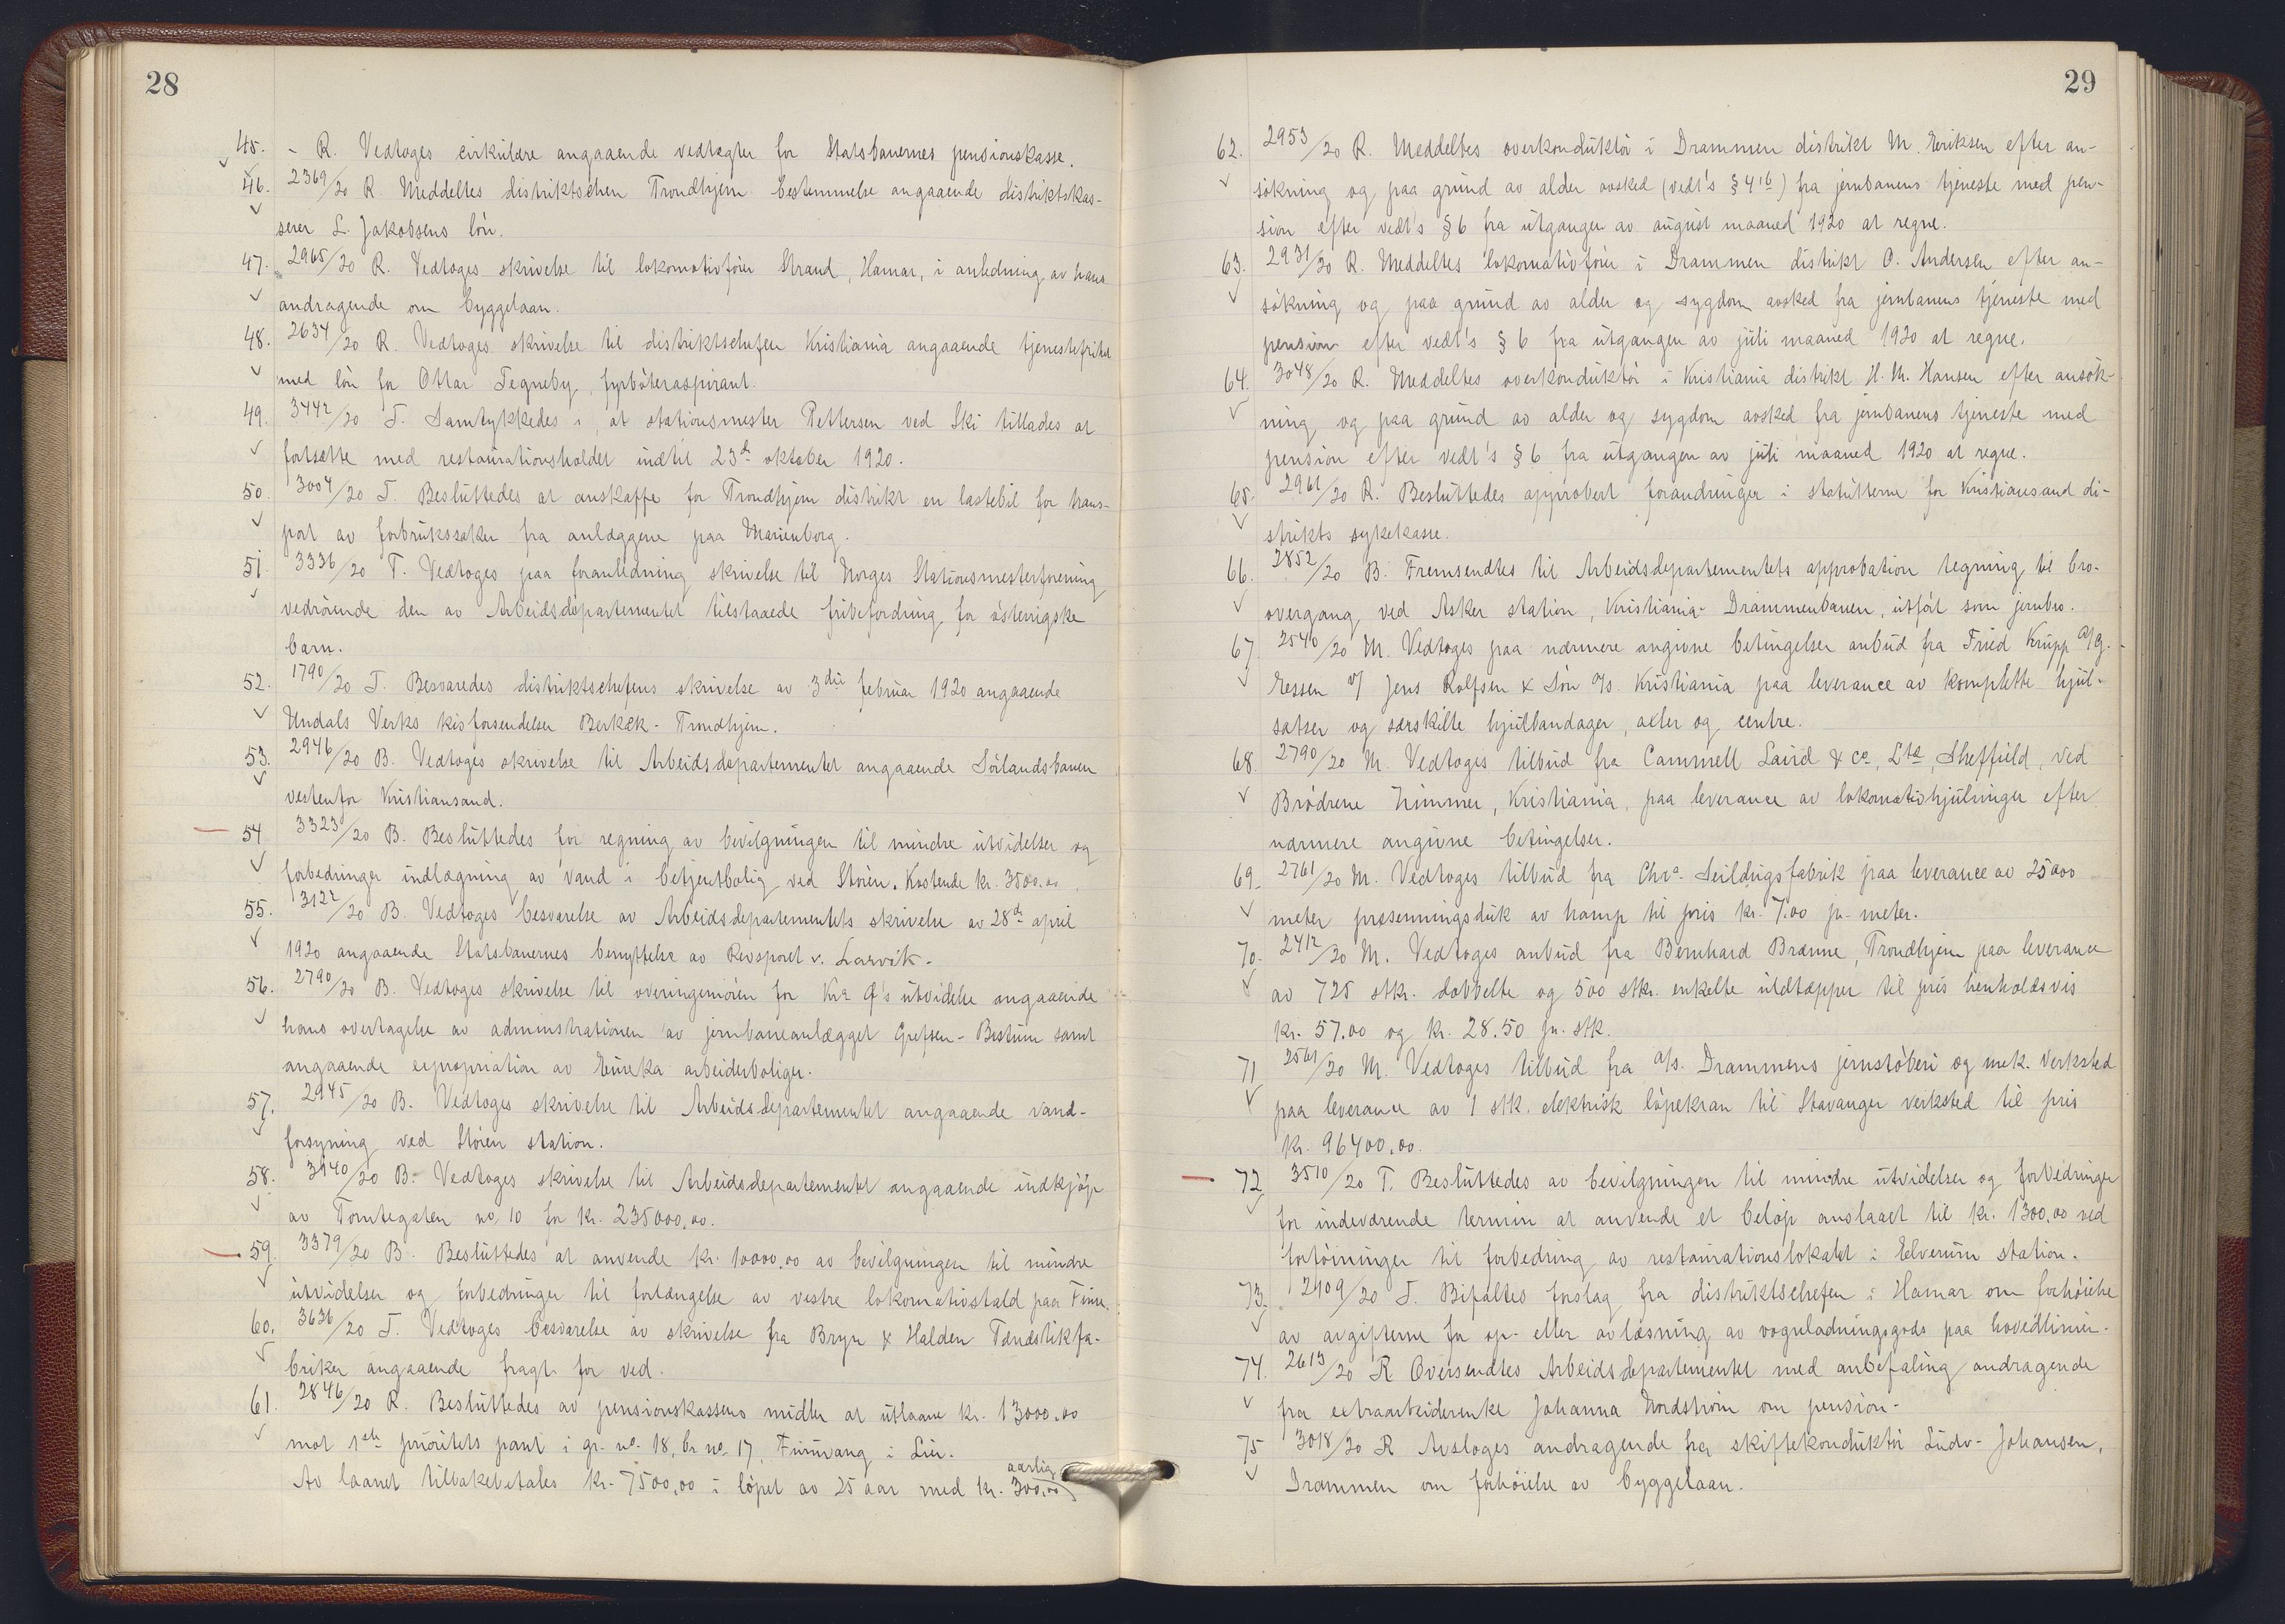 28
45. - R. Vedtoges cirkulære angaaende vedtægter for Statsbanernes pensionskasse.
46. 2369/20 R. Meddeltes distriktschen Trondhjem bestemmelse angaaende distriktskas-
serer L. Jakobsens lön.
47. 2965/20 R. Vedtoges skrivelse til lokomotivförer Strand, Hamar, i anledning av hans
andragende om byggelaan.
48. 2634/20 R. Vedtoges skrivelse til distriktschefen Kristiania angaaende tjenestefrihet
med lön for Ottar Tegneby, fyrböteraspirant.
49. 3442/20 T. Samtykkedes i, at stationsmester Pettersen ved Ski tillades at
fortsætte med restaurationsholdet indtil 23de oktober 1920.
50. 3004/20 T. Besluttedes at anskaffe for Trondhjem distrikt en lastebil for trans-
port av forbrukssaker fra anlæggene paa Marienborg.
51. 3336/20 T. Vedtoges paa foranledning skrivelse til Norges Stationsmesterforening
vedrörende den av Arbeidsdepartementet tilstaaede fribefordring for österrigske
barn.
52. 1790/20 T. Besvaredes distriktschefens skrivelse av 3die februar 1920 angaaende
Undals Verks kisforsendelser Berkaak - Trondhjem.
53. 2946/20 B. Vedtoges skrivelse til Arbeidsdepartementet angaaende Sörlandsbanen
vestenfor Kristiansand.
54 3323/20 B. Besluttedes for regning av bevilgningen til mindre utvidelser og
forbedringer indlægning av vand i betjentbolig ved Stören. Kostende kr. 3500.00.
55. 3122/20 B. Vedtoges besvarelse av Arbeidsdepartementets skrivelse av 28de april
1920 angaaende Statsbanernes benyttelse av Revsporet v. Larvik.
56. 2790/20 B. Vedtoges skrivelse til overingeniören for Kra Ø's utvidelse angaaende
hans overtagelse av adminstrationen av jernbaneanlægget Grefsen - Bestum samt
angaaende expropriation av Eureka arbeiderboliger.
57. 2945/20 B. Vedtoges skrivelse til Arbeidsdepartementet angaaende vand-
forsyning ved Stören station.
58. 3940/20 B. Vedtoges skrivelse til Arbeidsdepartementet angaaende indkjöp
av Tomtegaten no. 10 for kr. 235000.00.
59. 3379/20 B. Besluttedes at anvende kr. 10000.00 av bevilgningen til mindre
utvidelser og forbedringer til forlængelse av vestre lokomotivstald paa Finse.
60. 3636/20 T. Vedtoges besvarelse av skrivelse fra Bryn & Halden Tændstikfa-
briker angaaende fragt for ved.
61. 2846/20 R. Besluttedes av pensionskassens midler at utlaane kr. 13000.00
mot 1ste prioritets pant i gr. no. 18, br. no. 17, Furuvang i Lier.
Av laanet tilbakebetales kr. 7500.00 i löpet av 25 aar med kr. 300.00 aarlig
29
62. 2953/20 R. Meddeltes overkonduktör i Drammen distrikt M. Eriksen efter an-
sökning og paa grund av alder avsked (vedt's § 4 1b) fra jernbanens tjeneste med pen-
sion efter vedt's § 6 fra utgangen av august maaned 1920 at regne.
63. 2931/20 R. Meddeltes lokomotivförer i Drammen distrikt O. Andersen efter an-
sökning og paa grund av alder og sygdom avsked fra jernbanens tjeneste med
pension efter vedt's § 6 fra utgangen av juli maaned 1920 at regne.
64. 3048/20 R. Meddeltes overkonduktör i Kristiania distrikt H. M. Hansen efter ansök-
ning og paa grund av alder og sygdom avsked fra jernbanens tjeneste med
pension efter vedt's § 6 fra utgangen av juli maaned 1920 at regne.
65. 2961/20 R. Besluttedes approbert forandringer i statutterne for Kristiansand di-
strikts sykekasse.
66. 2852/20 B. Fremsendtes til Arbeidsdepartementets approbation tegning til bro-
overgang ved Asker station, Kristiania-Drammenbanen, utfört som jernbro.
67 2540/20 M. Vedtoges paa nærmere angivne betingelser anbud fra Fried Krupp A/G.
Essen v/ Jens Rolfsen & Sön A/s. Kristiania paa leverance av komplette hjul-
satser og særskilte hjulbandager, axler og centre.
68. 2790/20 M. Vedtoges tilbud fra Cammell Laird & Co, Ltd, Sheffield, ved
Brödrene Zimmer, Kristiania, paa leverance av lokomotivhjulringer efter
nærmere angivne betingelser.
69. 2761/20 M. Vedtoges tilbud fra Chra. Seildugsfabrik paa leverance av 25000
meter presenningsduk av hamp til pris kr. 7.00 pr. meter.
70. 2412/20 M. Vedtoges anbud fra Bernhard Brænne, Trondhjem paa leverance
av 725 stkr. dobbelte og 500 stkr. enkelte uldtæpper til pris henholdsvis
kr. 57.00 og kr. 28.50 pr. stk.
71 2561/20 M. Vedtoges tilbud fra A/s. Drammens jernstöberi og mek. Verksted
paa leverance av 1 stk. elektrisk löpekran til Stavanger verksted til pris
kr. 96400.00.
72 3510/20 T. Besluttedes av bevilgningen til mindre utvidelser og forbedringer
for indeværende termin at anvende et belöp anslaaet til kr. 1300.00 ved
fortöininger til forbedring av restaurationslokalet i Elverum station.
73. 2909/20 T. Bifaltes forslag fra distriktschefen i Hamar om forhöielse
av avgifterne for op- eller avlæsning av vognladningsgods paa hovedlinier.
74. 2613/20 R Oversendtes Arbeidsdepartementet med anbefaling andragende
fra extraarbeiderenke Johanna Nordström om pension.
75 3018/20 R Avsloges andragende fra skiftekonduktör Ludv. Johansen,
Drammen om forhöielse av byggelaan.